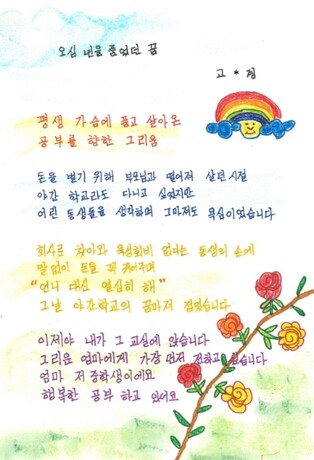 오십 년을 품었던 꿈
고 * 정
평생 가슴에 품고 살아온
공부를 향한 그리움
돈을 벌기 위해 부모님과 떨어져 살던 시절
야간 학교라도 다니고 싶었지만
어린 동생들을 생각하며 그마저도 욕심이었습니다
회사로 찾아와 육성회비 없다는 동생의 손에
말없이 돈을 꼭 쥐어주며
"언니 대신 열심히 해"
그날 야간학교의 꿈마저 접었습니다
이제야 내가 그 교실에 앉습니다
그리운 엄마에게 가장 먼저 전하고 싶습니다
엄마 저 중학생이에요
행복한 공부 하고 있어요